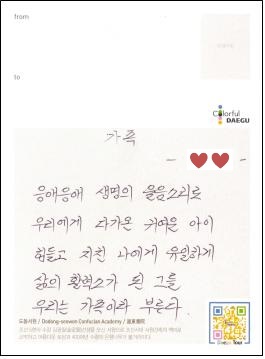 from
to
Colorful
DAEGU
가족
- ♥♥ -
응애응애 생명의 울음소리로
우리에게 다가온 귀여운 아이
힘들고 지친 나에게 유일하게
삶의 활력소가 된 그들
우리는 가족이라 부른다.
도동서원 / Dodong-seowon Confucian Academy / 道東書院